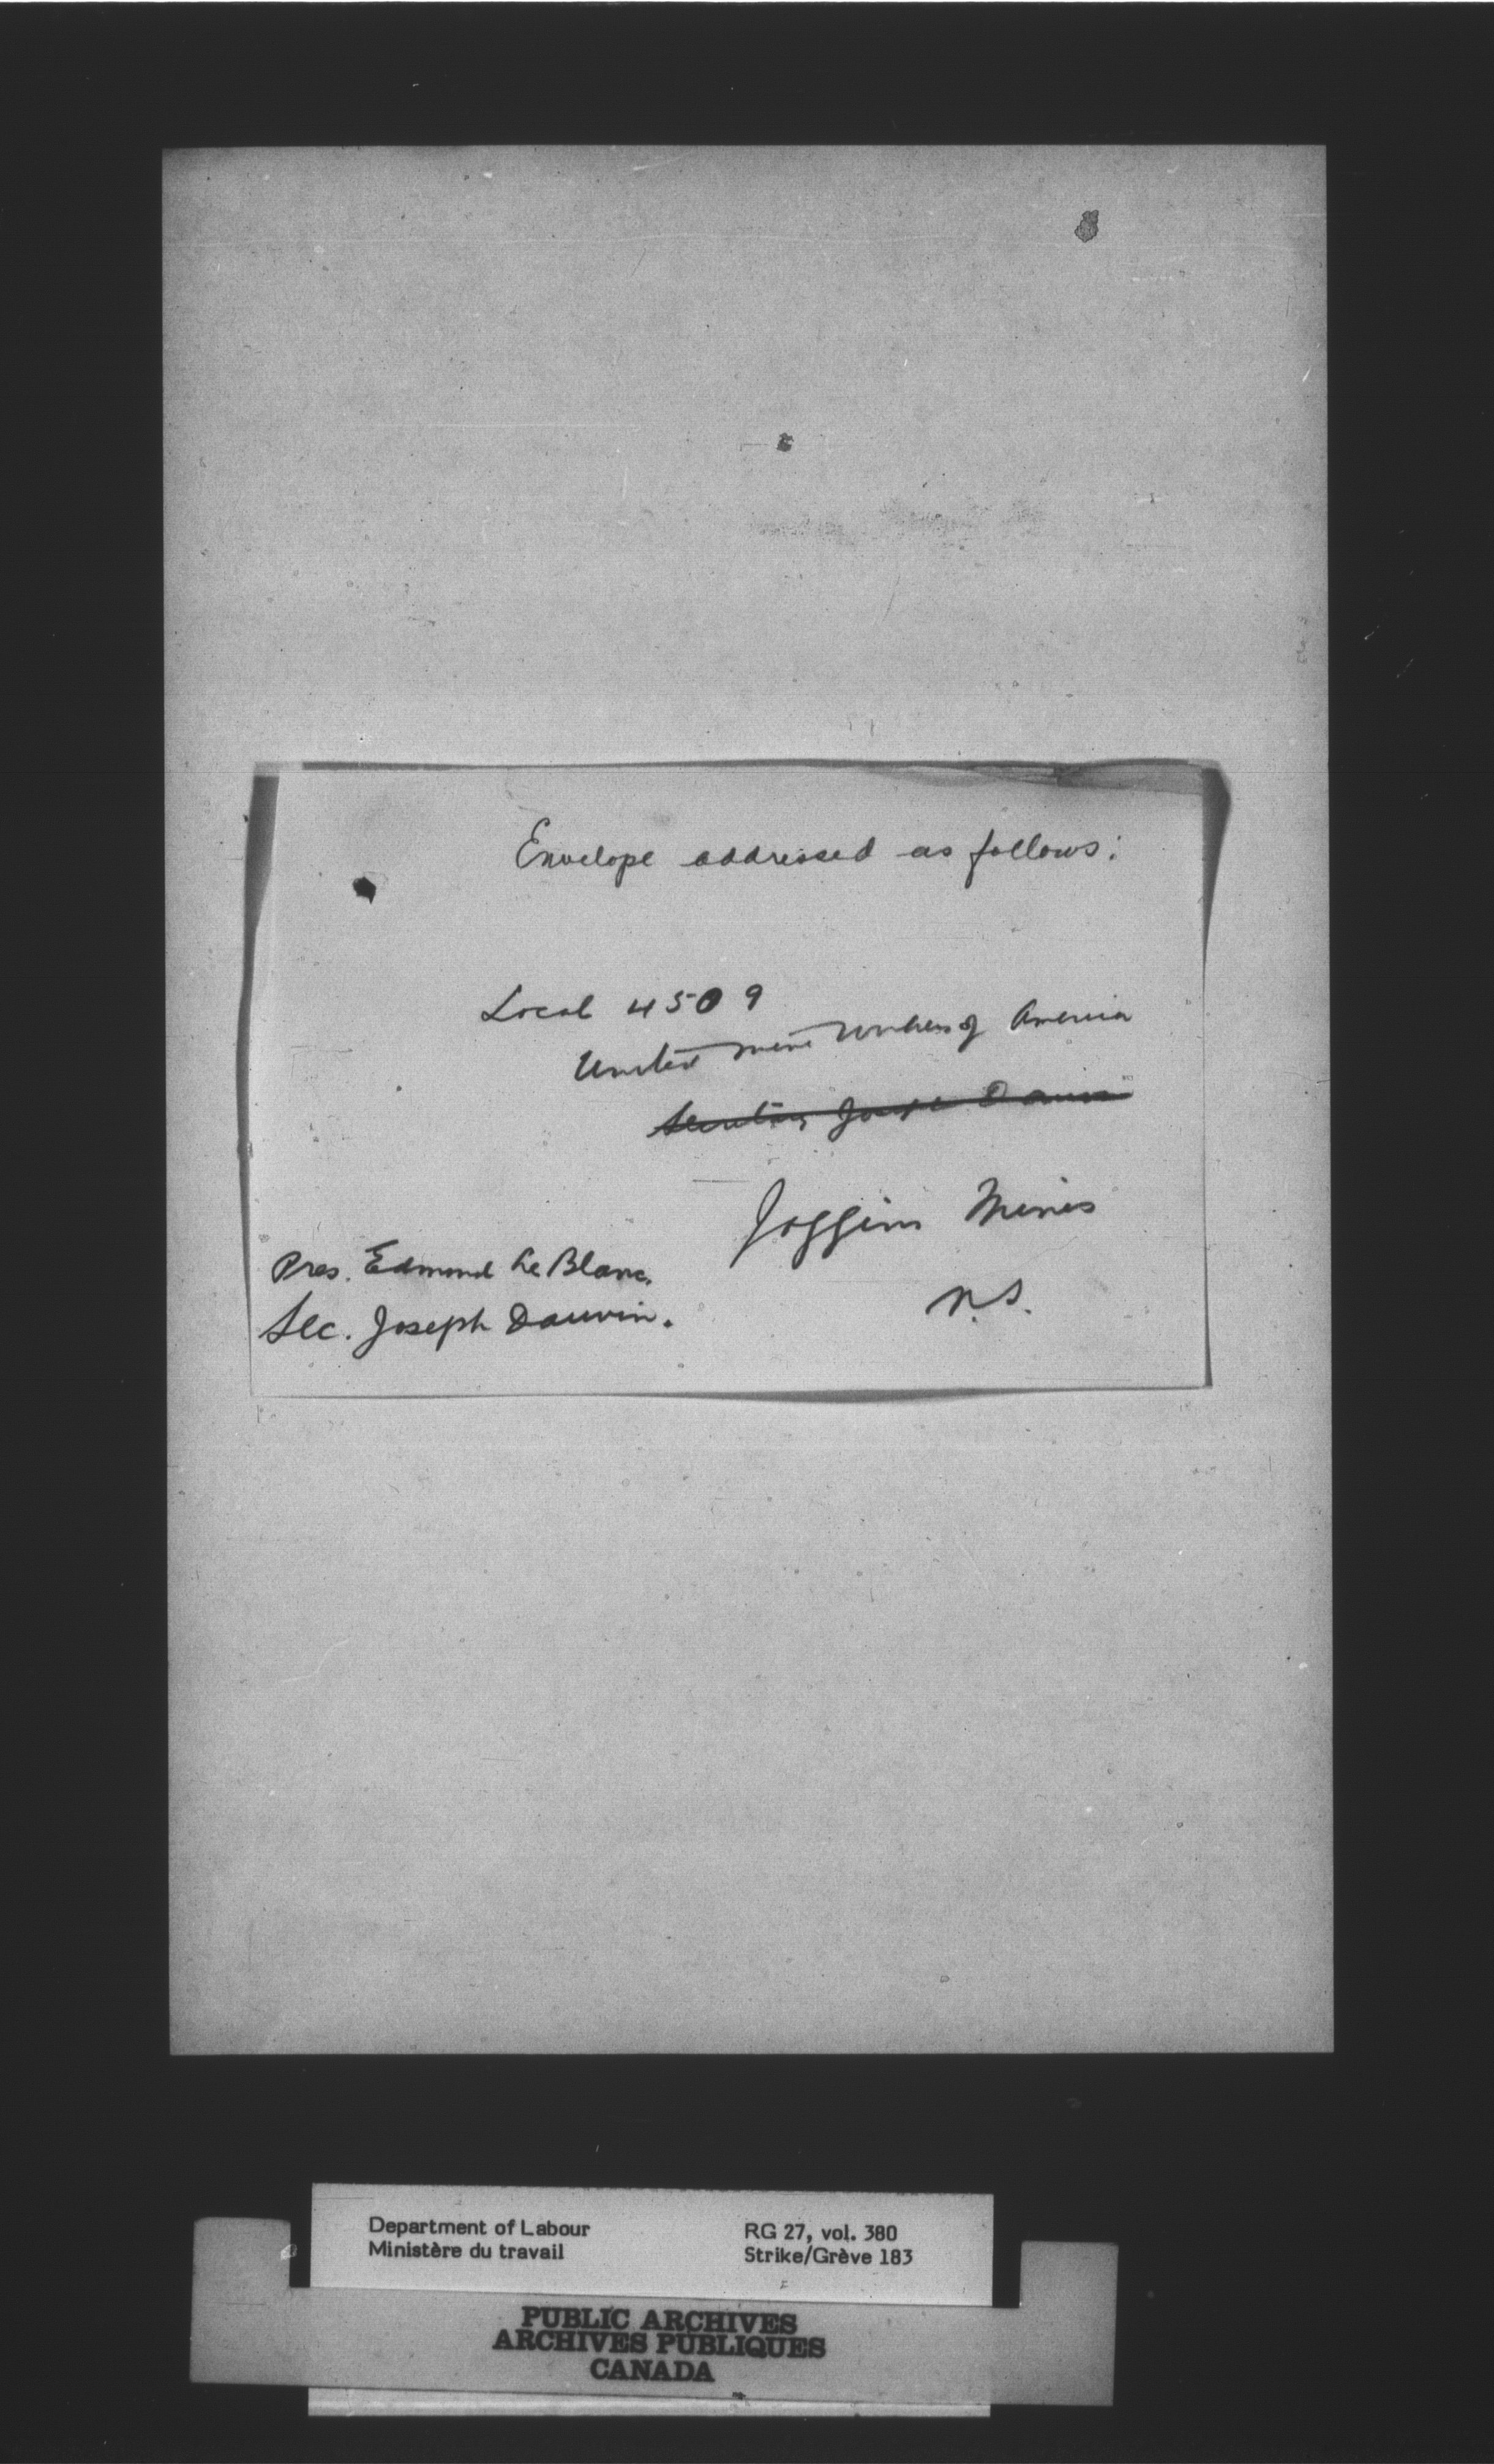 Envelope addressed as follows:
Local 4509
United Mine Workers of America
Secretary Joseph Dauvin
Joggins Mines
N.S.
Pres. Edmond Le Blanc.
Sec. Joseph Dauvin.
Department of Labour
Ministère du travail
RG 27, vol. 380
Strike/Grève 183
PUBLIC ARCHIVES
ARCHIVES PUBLIQUES
CANADA